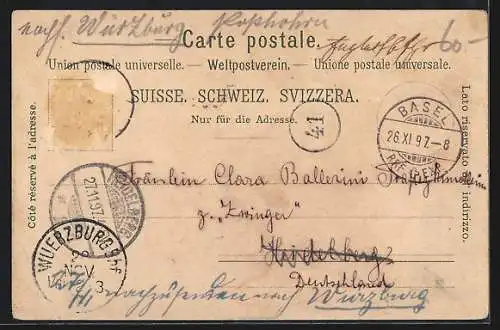 nach Würzburg
Carte postale.
Union postale universelle. – Weltpostverein. – Unione postale universale.
SUISSE. SCHWEIZ. SVIZZERA.
Nur für die Adresse.
Côté réservé à l'adresse.
Lato riservato all' indirizzo.
41
BASEL
26.XI.97.-8
HEIDELBERG
27.11.97.
Fräulein Clara Ballerini
z. "Zwinger"
Heidelberg
Deutschland
WUERZBURG Bhf
29
NOV
3
nachzusenden nach Würzburg